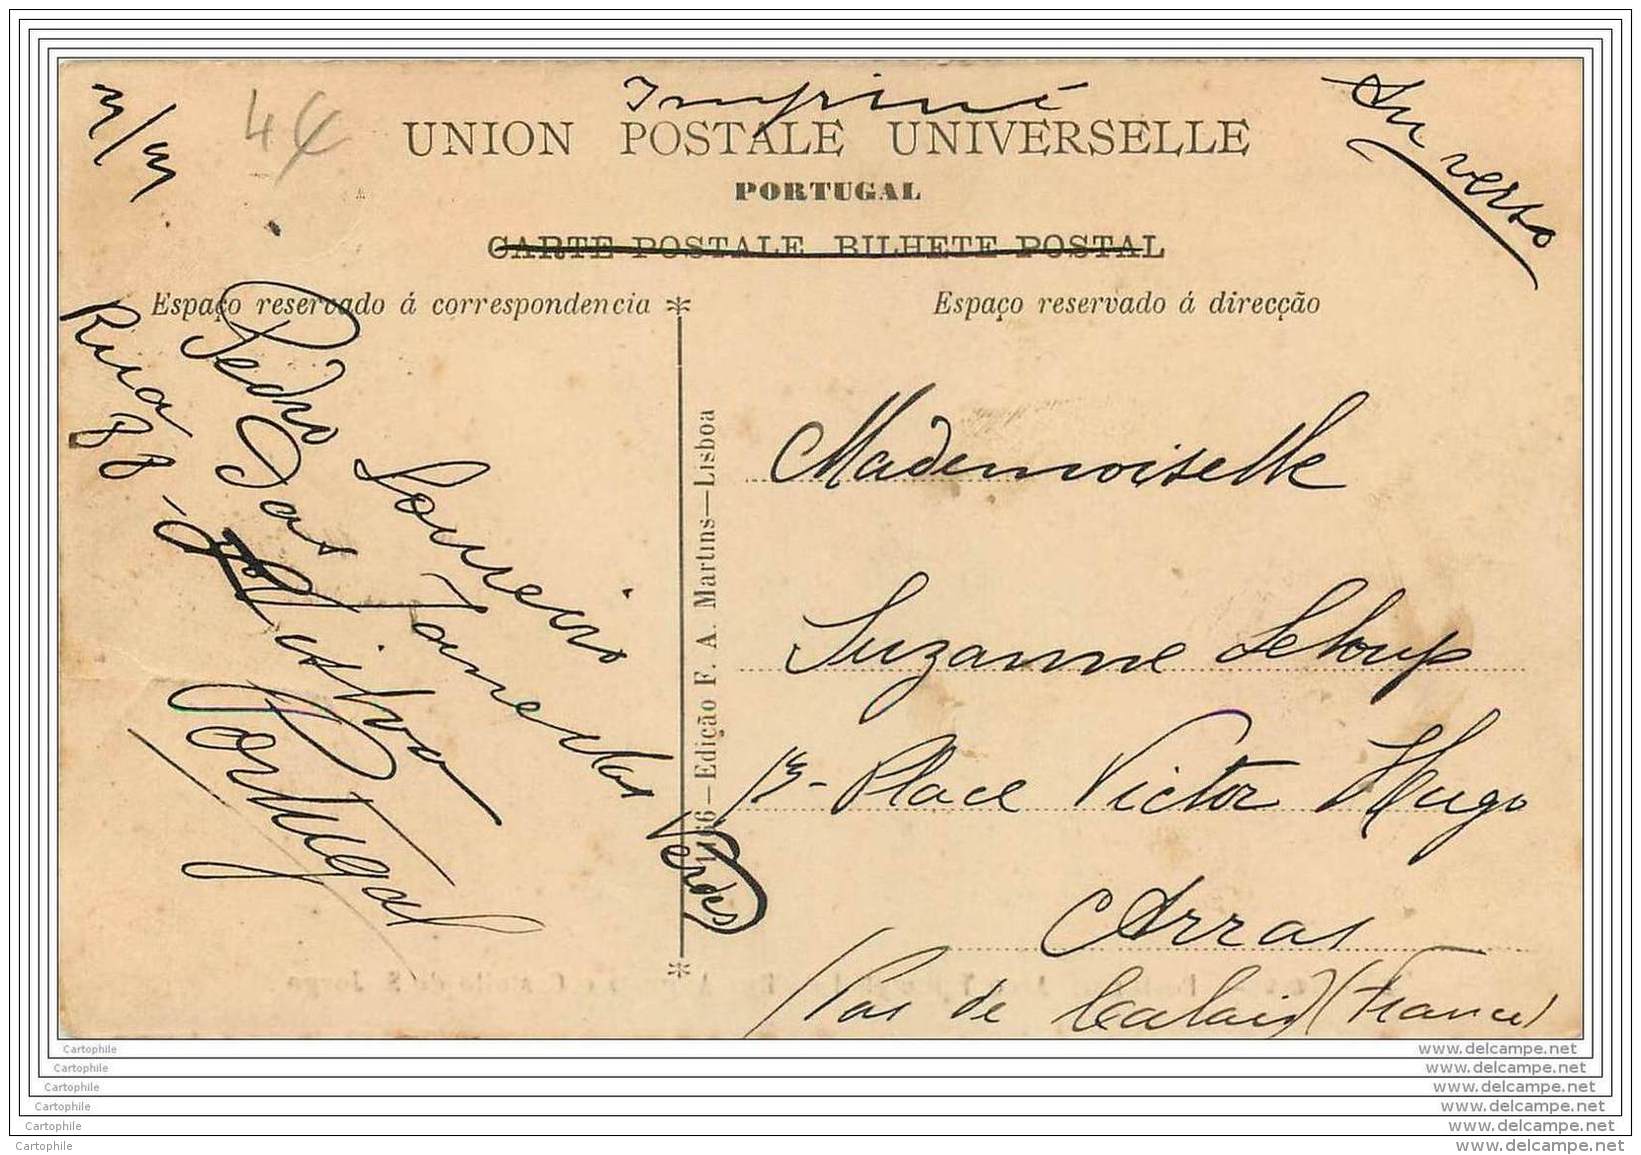 Imprimé
3/3
4€
Au verso
UNION POSTALE UNIVERSELLE
PORTUGAL
CARTE POSTALE BILHETE POSTAL
Espaço reservado á correspondencia
Espaço reservado á direcção
Pedro Loureiro
Rua Das Janellas Verdes
88 - Lisboa
Portugal
1166—Edição F. A. Martins—Lisboa
Mademoiselle
Suzanne Leloup
13- Place Victor Hugo
Arras
(Pas de Calais) (France)
Cartophile
www.delcampe.net
Cartophile
www.delcampe.net
Cartophile
www.delcampe.net
Cartophile
www.delcampe.net
Cartophile
www.delcampe.net
Cartophile
www.delcampe.net